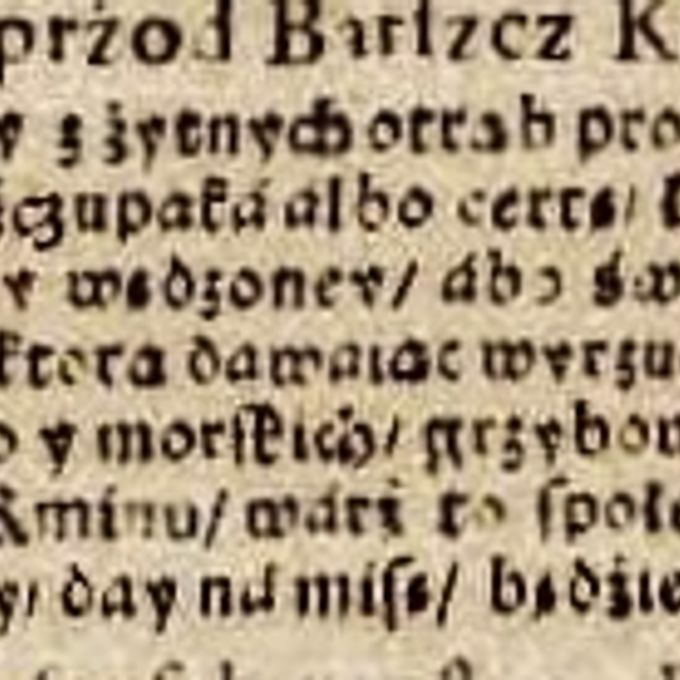 przod Barſzcz K
z żytnych otrąb pro
czupáká álbo certę/
wędzoney/ ábo św
ktora dawáiąc wyrzu
y morſkich/ grzybow
Kminu/ warz to ſpołe
day ná miſę/ będzie